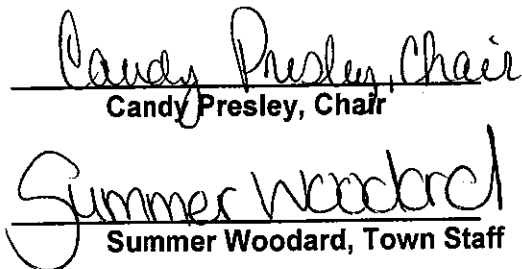 Candy Presley, Chair
Candy Presley, Chair
Summer Woodard
Summer Woodard, Town Staff